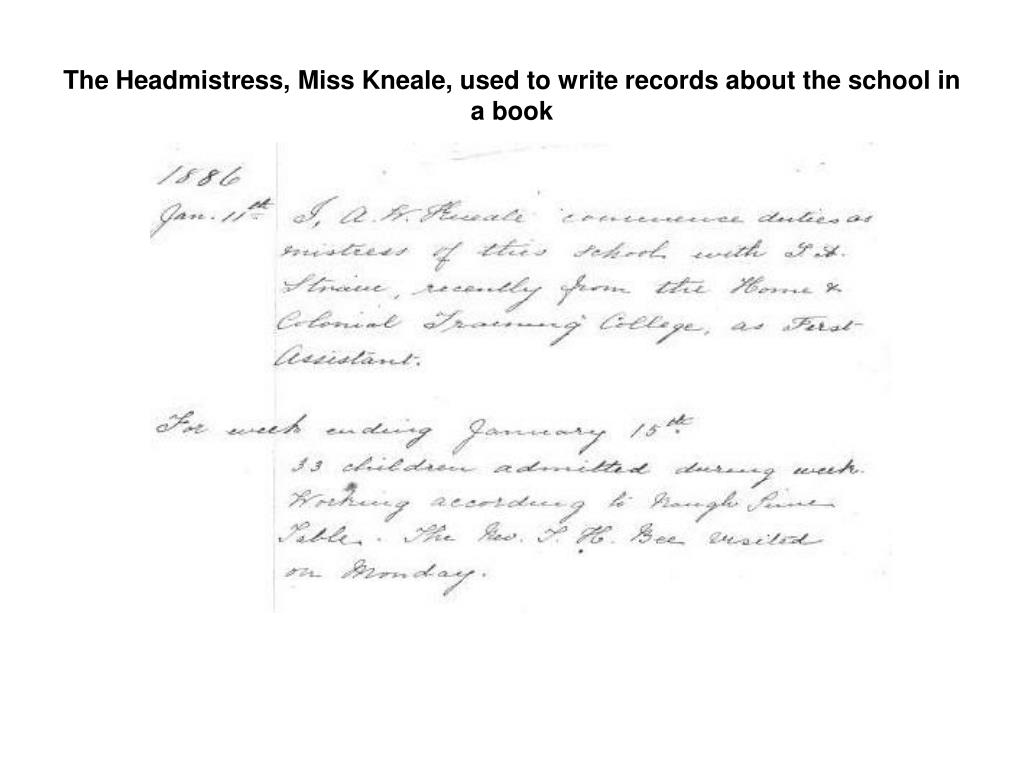 The Headmistress, Miss Kneale, used to write records about the school in
a book
1886
Jan. 11th I, A. W. Kneale commence duties as
mistress of this school with
recently from the Home &
Colonial Training College, as First
Assistant.
For week ending January 15th
33 children admitted during week.
Working according to Rough Time
Table. The Rev. T. H. Bee visited
on Monday.